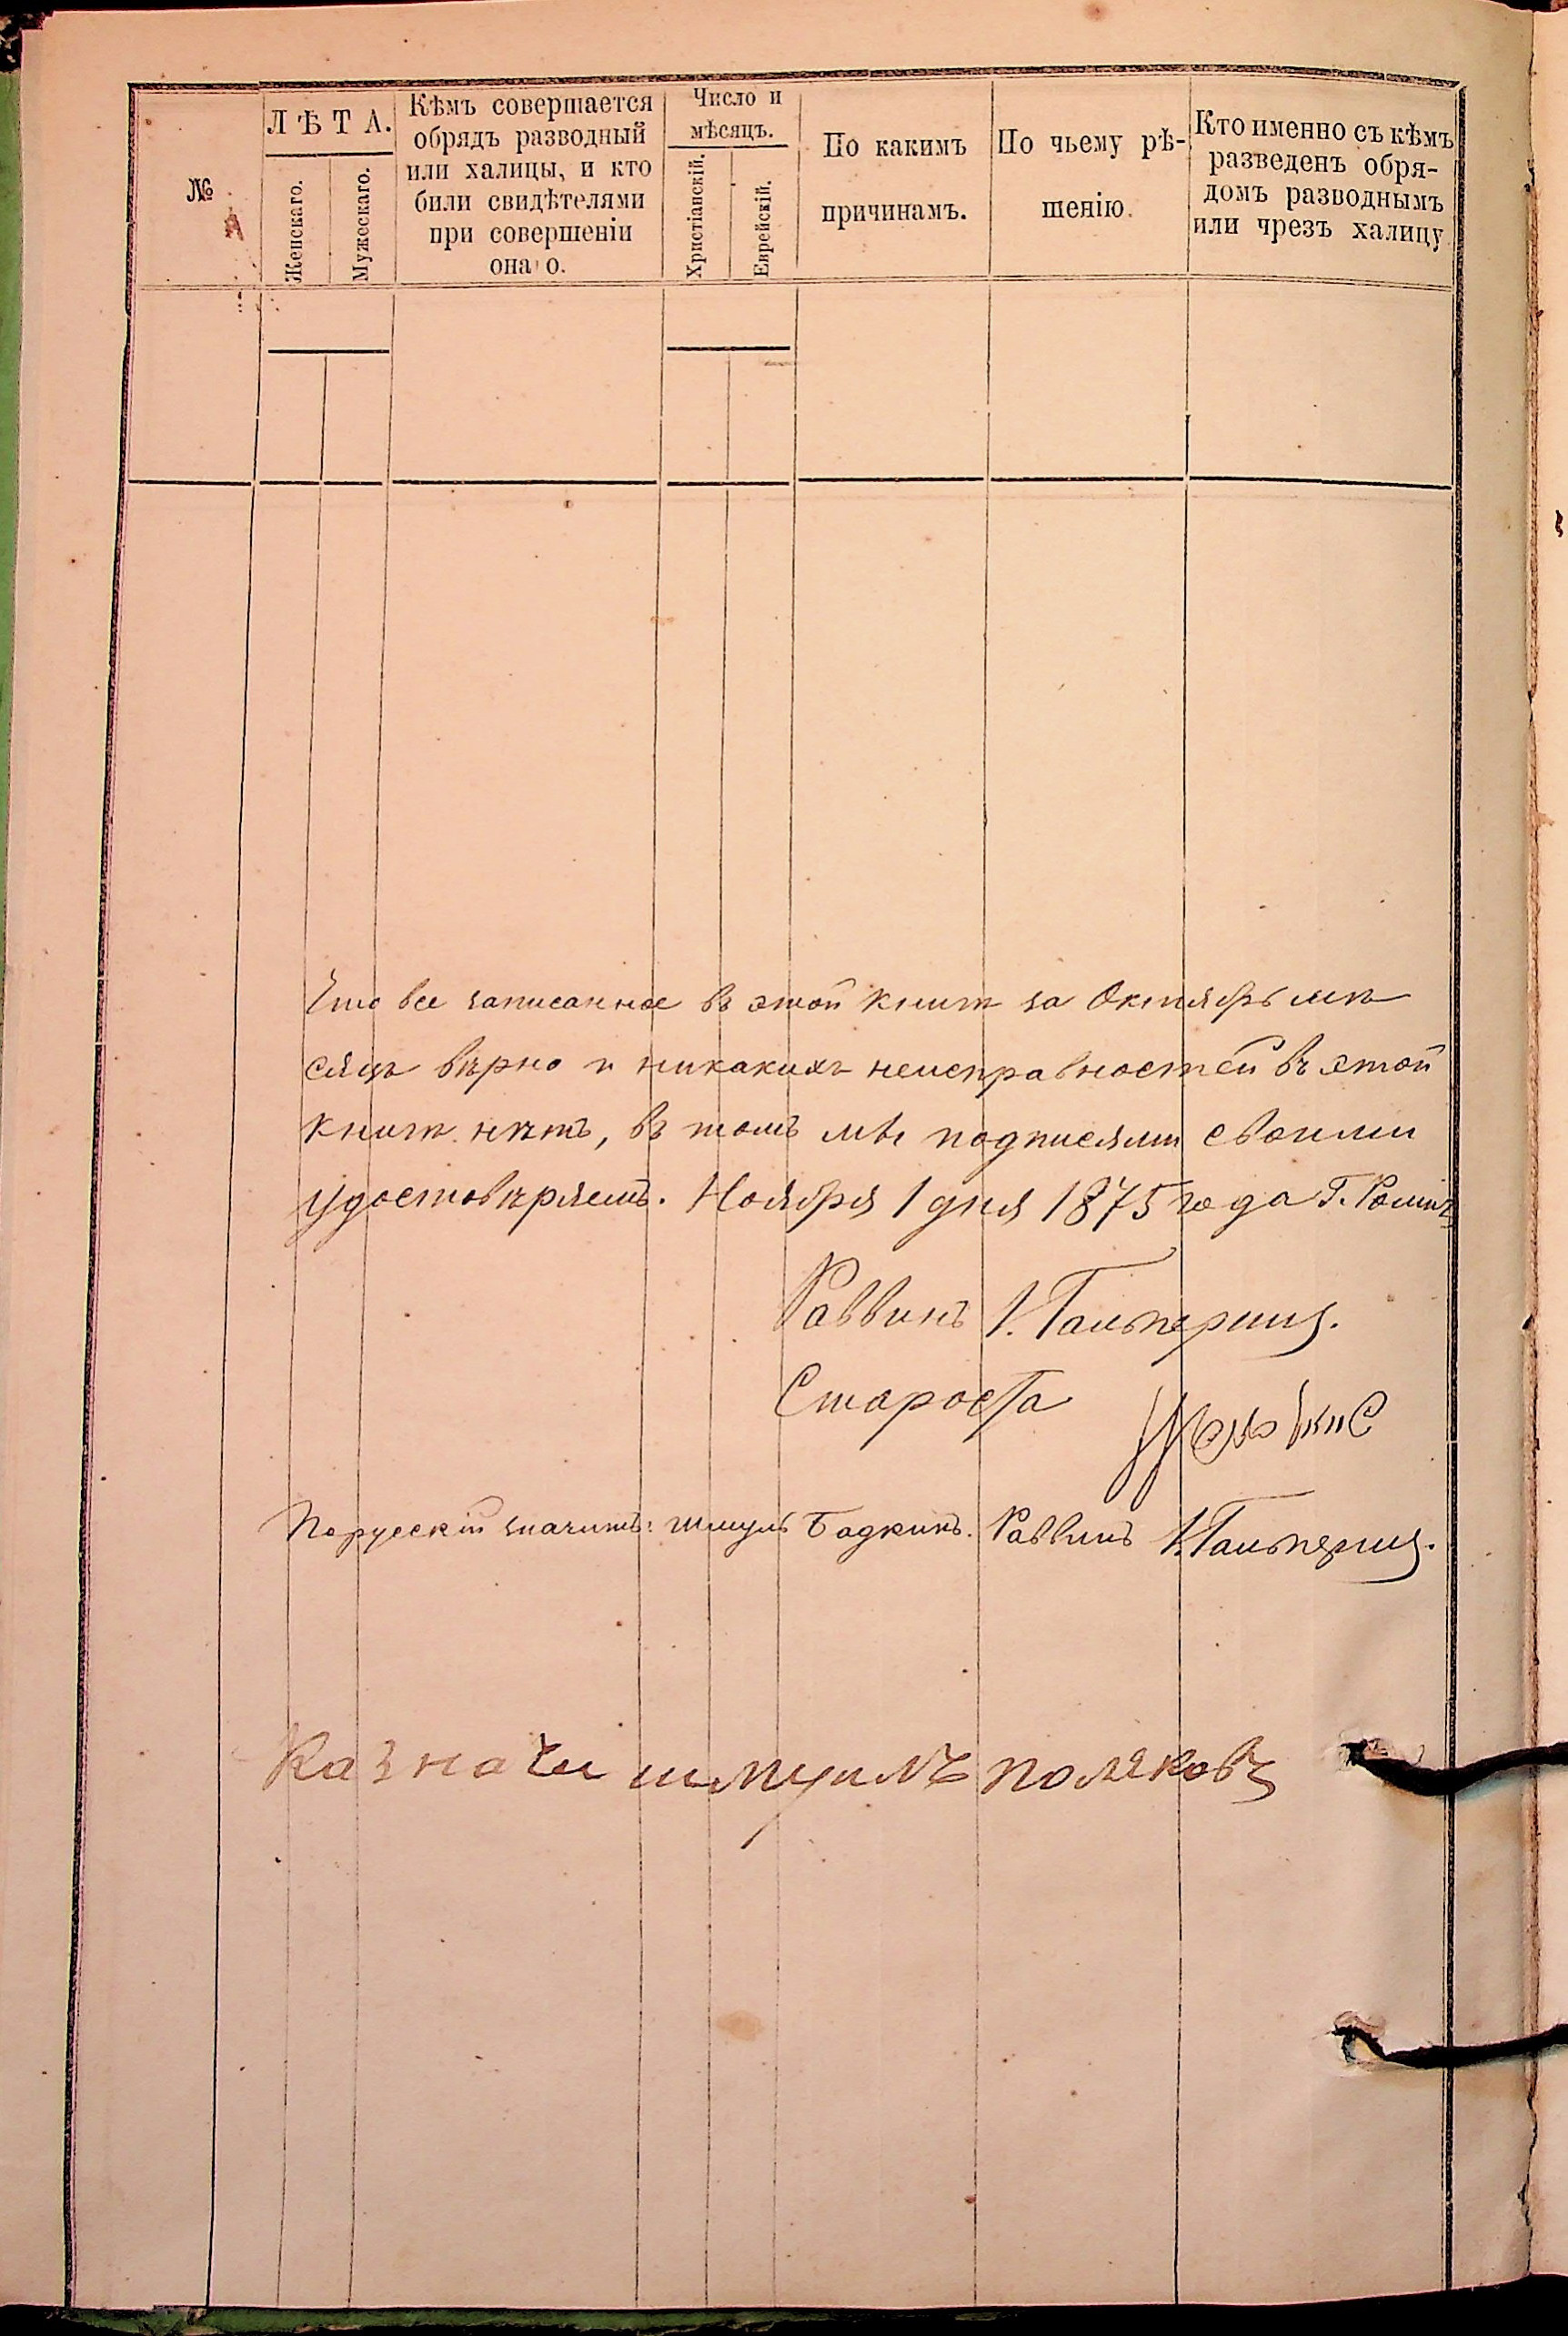 №
ЛѢТА.
Женскаго.
Мужескаго.
Кѣмъ совершается
обрядъ разводный
или халицы, и кто
били свидѣтелями
при совершеніи
она о.
Число и
мѣсяцъ.
Христіанскій.
Еврейскій.
По какимъ
причинамъ.
По чьему рѣ-
шенію.
Кто именно съ кѣмъ
разведенъ обря-
домъ разводнымъ
или чрезъ халицу
Что все записанное въ этой книгѣ за Октябрь мѣ
сяцъ вѣрно и никакихъ неисправностей въ этой
книгѣ нѣтъ, въ томъ мы подписями своими
удостовѣряемъ. Ноября 1 дня 1875 года Г. Ромнъ
Раввинъ И. Гальперинъ.
Староста
Порусскій значитъ: Шмуль Бадкинъ. Раввинъ И. Гальперинъ.
Казначи шмуилъ поляковъ